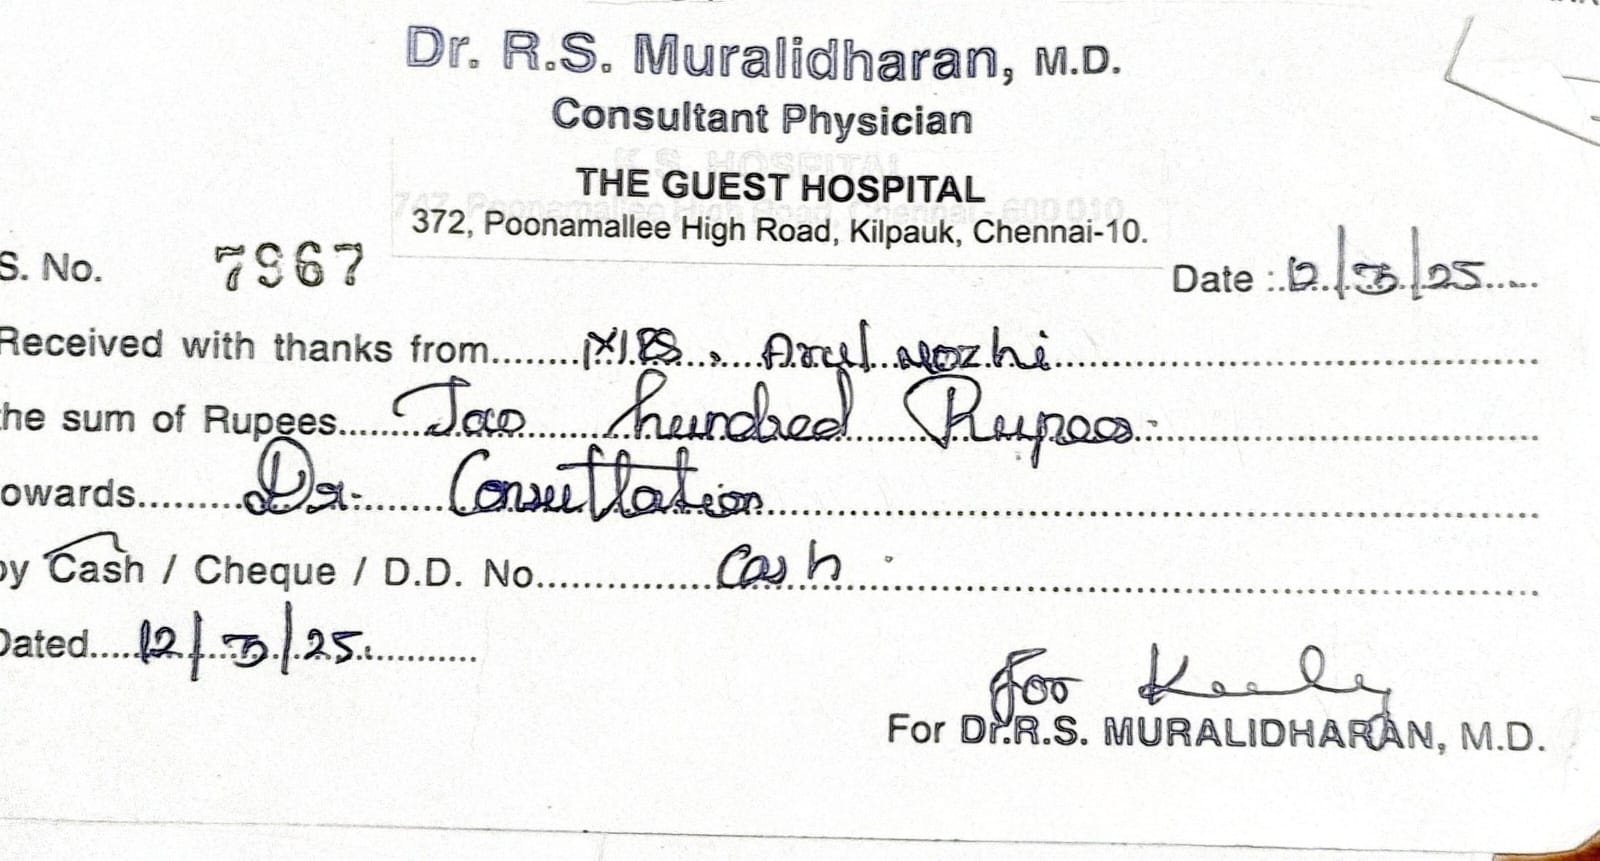 Dr. R.S. Muralidharan, M.D.
Consultant Physician
K.S. HOSPITAL
THE GUEST HOSPITAL
747, Poonamallee High Road, Chennai - 600 010
372, Poonamallee High Road, Kilpauk, Chennai-10.
S. No. 7967 Date : 12/3/25
Received with thanks from Mrs. Arul mozhi
he sum of Rupees Two hundred Rupees.
owards Dr. Consultation
by Cash / Cheque / D.D. No. Cash.
Dated 12/3/25.
For
For Dr.R.S. MURALIDHARAN, M.D.